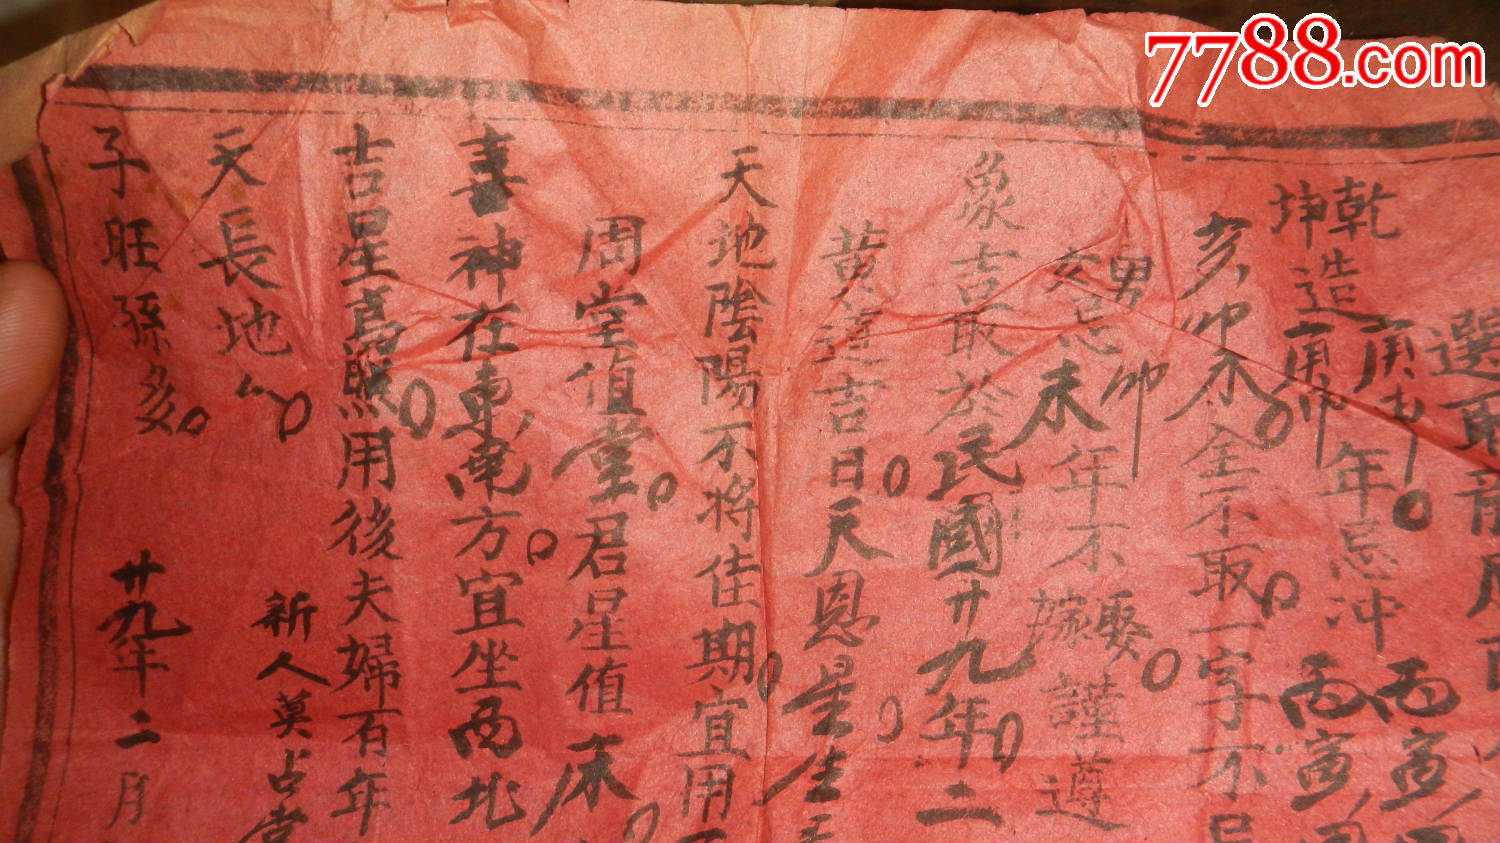 7788.com
選取龍
乾造庚申年忌冲丙寅
坤造庚
亥卯未全不取一字不
男卯 娶
女忌未年不嫁謹遵
象吉取於民國廿九年二
黃道吉日天恩星
天地陰陽不將佳期宜用
周堂值堂君星值床
喜神在東南方宜坐西北
吉星高照用後夫婦有年
天長地久
新人莫占堂
子旺孫多
廿九年二月